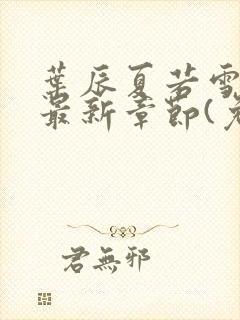 葉辰夏若雪
最新章節(
君無邪